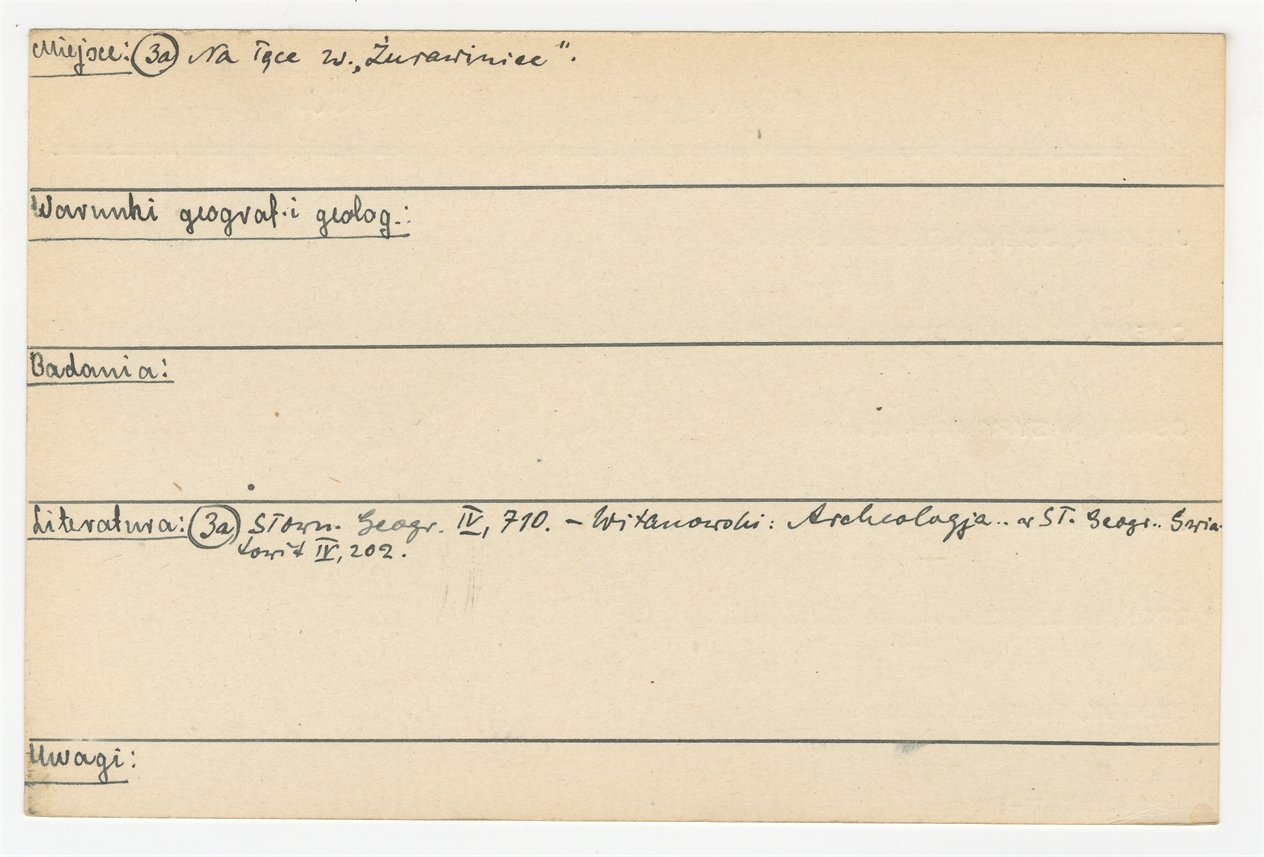 Miejsce: (3a) Na łące zw. „Żurawiniec".
Warunki geograf. i geolog.:
Badania:
Literatura: (3a) Słown. Geogr. IV, 710. – Witanowski: Archeologja.. w Sł. Geogr.. Świa-
towit IV, 202.
Uwagi: